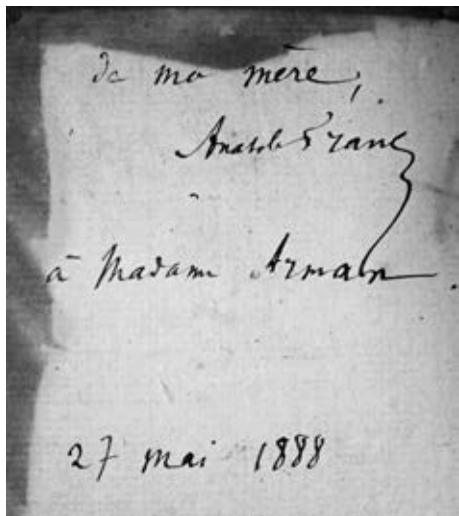 de ma mère,
Anatole France
à Madame Arman
27 mai 1888